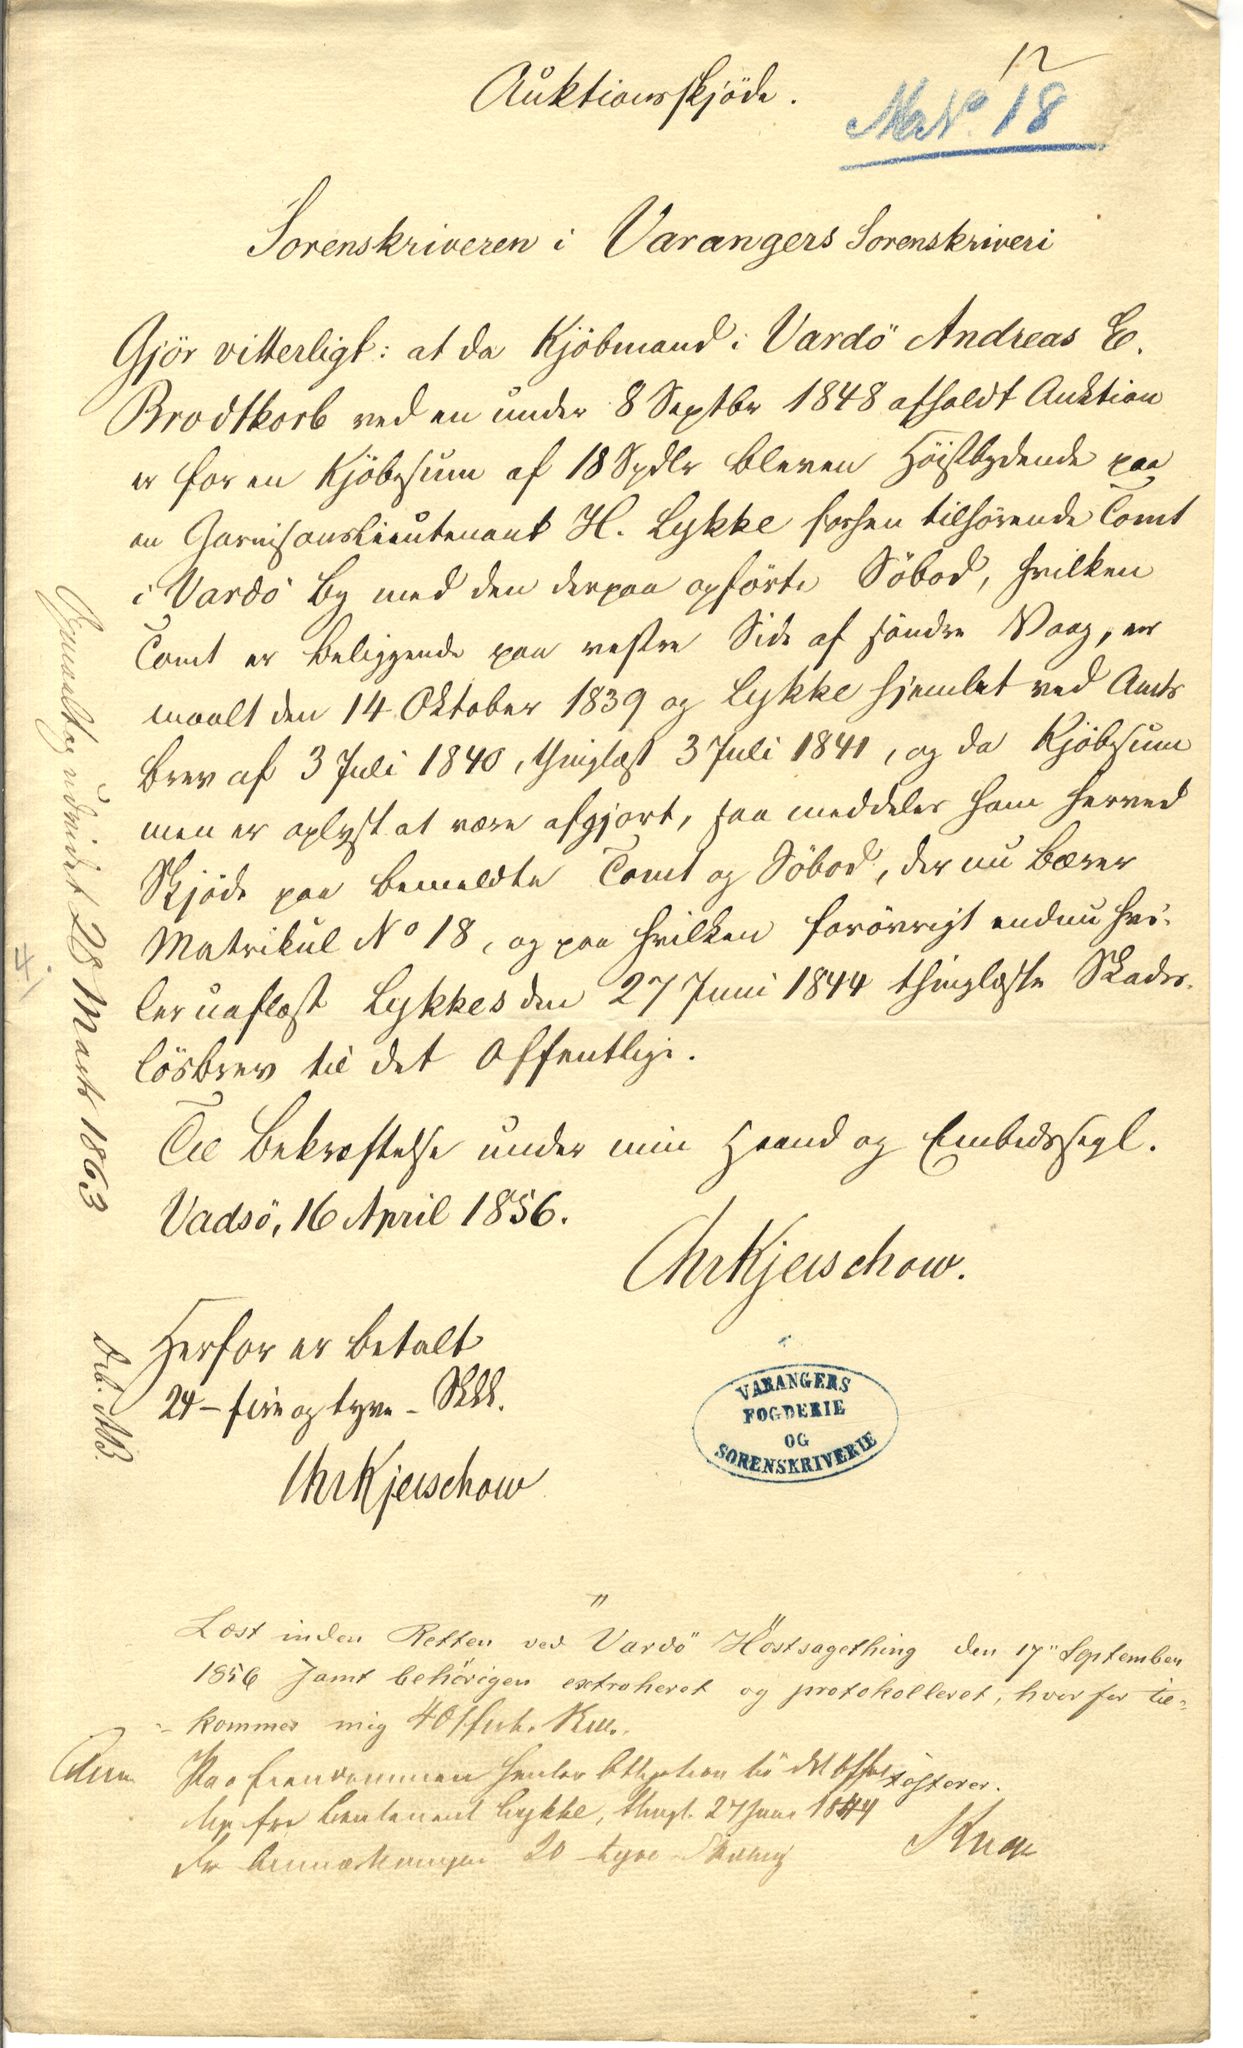 12
Auktionsskjöde.
MaNo. 18
Sorenskriveren i Varangers Sorenskriveri
Gjör vitterligt: at da Kjöbmand i Vardö Andreas E.
Brodtkorb ved en under 8 Septbr 1848 afholdt Auktion
er for en Kjöbesum af 18 Spdlr bleven Höistbydende paa
en Garnisonslieutenant H. Lykke forhen tilhörende Tomt
i Vardö By med den derpaa opförte Söbod, hvilken
Tomt er beliggende paa vestre Side af söndre Vaag, er
maalt den 14 Oktober 1839 og Lykke hjemlet ved Amts
brev af 3 Juli 1840, thinglæst 3 Juli 1841, og da Kjöbesum
men er oplyst at være afgjort, saa meddeles ham herved
Skjöde paa bemeldte Tomt og Söbod, der nu bærer
Matrikul No 18, og paa hvilken forövrigt endnu hvi-
ler uaflæst Lykkes den 27 Juni 1844 thinglæste Skades-
lösbrev til det Offentlige.
Til Bekræftelse under min Haand og Embedssegl.
Vadsö, 16 April 1856.
Chr Kjerschow.
Herfor er betalt
24 - fire og tyve - Skill.
Chr Kjerschow
VARANGERS
FOGDERIE
OG
SORENSKRIVERIE
Læst inden Retten ved Vardö Höstsagething den 17" September
1856 samt behörigen extraheret og protokolleret, hvorfor til-
kommer mig 40 förti Skill.
Anm. Paa Eiendommen hefter Obligation til det Offent
lige fra Lieutenant Lykke, thingl. 27 Juni 1844
For Anmærkningen 20 tyve Skilling
28 Marts 1863
4